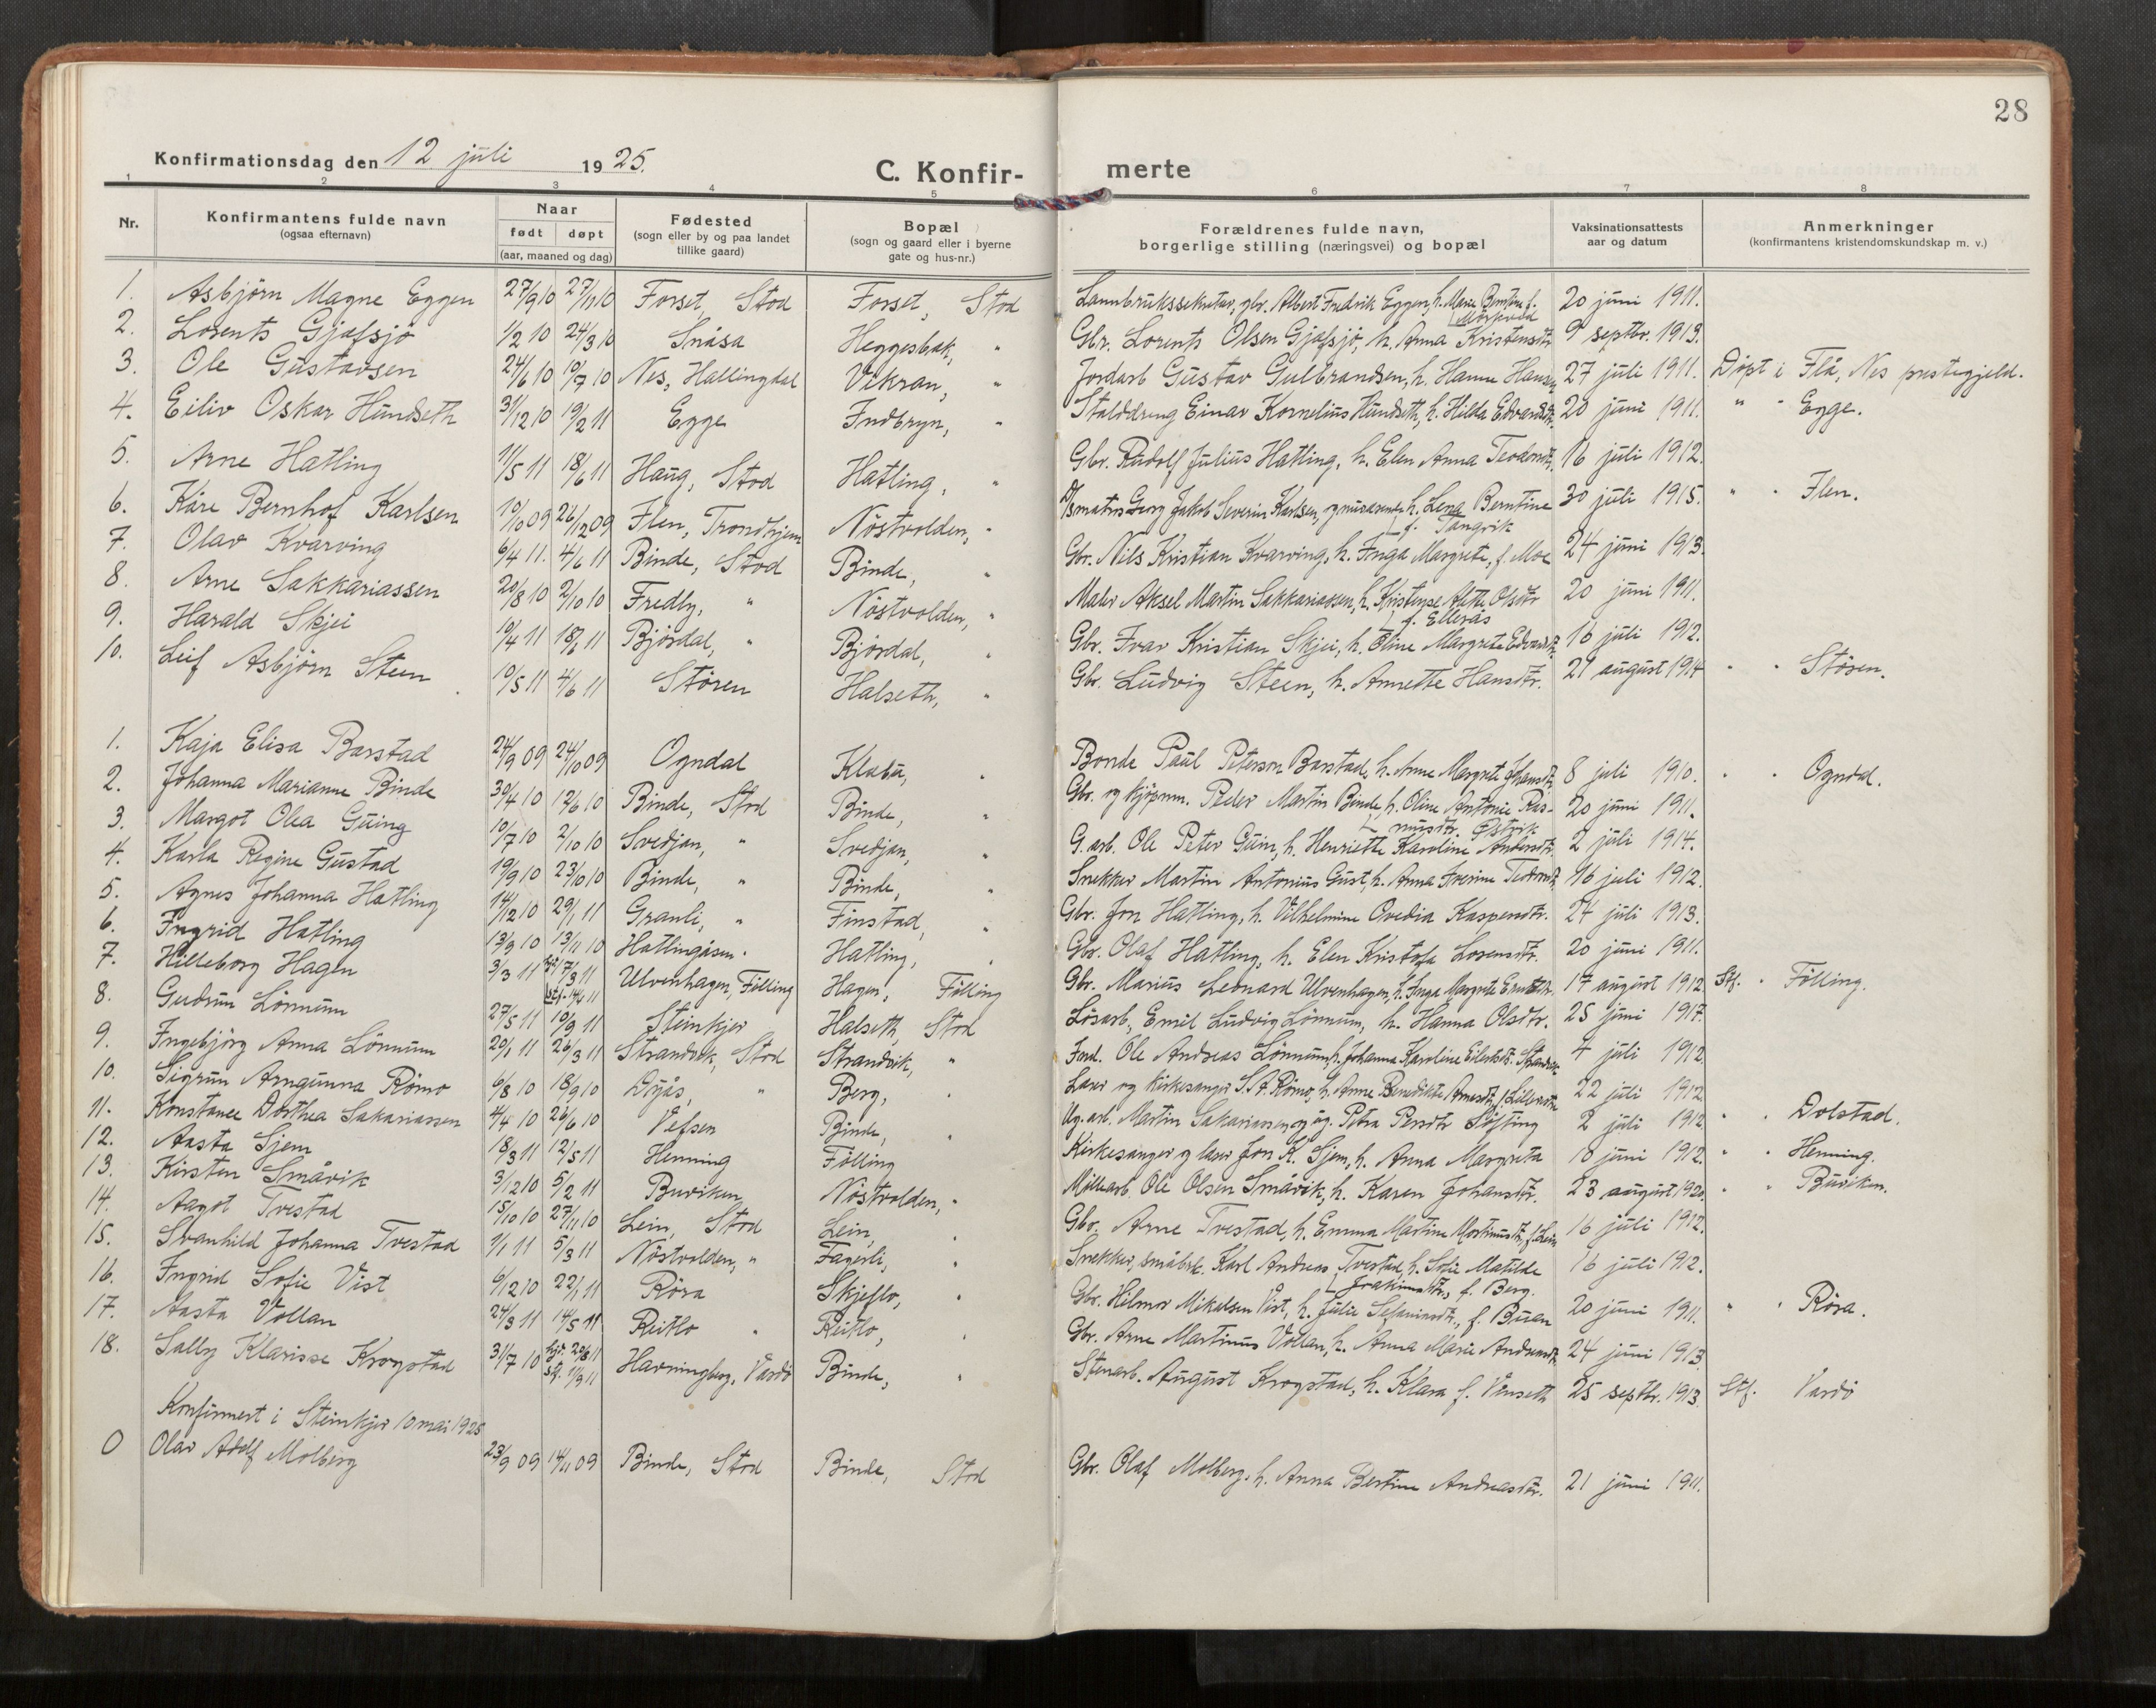 28
Konfirmationsdag den 12. juli 1925.
C. Konfir- merte
1 2 3 4 5 6 7 8
Nr.
Konfirmantens fulde navn
(ogsaa efternavn)
Naar
født døpt
(aar, maaned og dag)
Fødested
(sogn eller by og paa landet
tillike gaard)
Bopæl
(sogn og gaard eller i byerne
gate og hus-nr.)
Forældrenes fulde navn,
borgerlige stilling (næringsvei) og bopæl
Vaksinationsattests
aar og datum
Anmerkninger
(konfirmantens kristendomskundskap m. v.)
1. Asbjörn Magne Eggen 27/9 10 27/11 10 Forset, Stod Forset, Stod Lannbrukssekretær, gbr. Albert Fredrik Eggen, h. Marie f. 20 juni 1911.
2. Lorents Gjafsjö 1/2 10 24/3 10 Snåsa Heggesbak, " Gbr. Lorents Olsen Gjafsjö, h. Anna Kristensdtr. 9 septbr. 1913.
3. Ole Gustavsen 24/6 10 10/7 10 Nes, Hallingdal Vikran, " Jordarb Gustav Gulbrandsen, h. Hanne Hansen 27 juli 1911. Döpt i Flå, Nes prestegjeld.
4. Eiliv Oskar Hundseth 31/12 10 19/2 11 Egge Indbryn, " Stalddreng Einar Kornelius Hundseth, h. Hilda Edvardsdtr. 20 juni 1911. " " Egge.
5. Arne Hatling 11/5 11 18/6 11 Haug, Stod Hatling, " Gbr. Rudolf Julius Hatling, h. Elen Anna Teodorsdtr. 16 juli 1912.
6. Kåre Bernhof Karlsen 10/10 09 26/12 09 Ilen, Trondhjem Nöstvolden, " Jakob Severin Karlsen, h. Lena Berntine
f. Tangvik 30 juli 1915. " " Ilen.
7. Olav Kvarving 6/4 11. 4/6 11 Binde, Stod Binde, " Gbr. Nils Kristian Kvarving, h. Inga Margrete, f. Moe 24 juni 1913.
8. Arne Sakkariassen 20/8 10 2/10 10 Fredly, " Nöstvolden, " Maler Aksel Martin Sakkariassen, h. Olsdtr
f. Ellerås 20 juni 1911.
9. Harald Skjei 10/4 11 18/6 11 Björdal, " Björdal, " Gbr. Ivar Kristian Skjei, h. Oline Margrete Edvardsdtr. 16 juli 1912.
10. Leif Asbjörn Steen 10/5 11 4/6 11 Stören Halseth, " Gbr. Ludvig Steen, h. Annette Hansdtr. 21 august 1914 " " Stören.
1. Kaja Elisa Barstad 24/9 09 24/10 09 Ogndal Klabu, " Bonde Paul Peterson Barstad, h. Anne Margrete Johansdtr. 8 juli 1910. " " Ogndal.
2. Johanna Marianne Binde 30/4 10 12/6 10 Binde, Stod Binde, " Gbr. og kjöpm. Peder Martin Binde, h. Oline Antonie Ras-
musdtr. Östvik 20 juni 1911.
3. Margot Olea Guing 10/7 10 2/10 10 Svedjan, " Svedjan, " G. arb. Ole Peter Guin, h. Henriette Karoline Andersdtr. 2 juli 1914.
4. Karla Regine Gustad 19/9 10 23/10 10 Binde, " Binde, " Snekker Martin Antonius Gust, h. Anna Iverine Teodorsdtr. 16 juli 1912.
5. Agnes Johanna Hatling 14/12 10 29/1 11 Granli, " Finstad, " Gbr. Jon Hatling, h. Vilhelmine Ovedia Kaspersdtr. 24 juli 1913.
6. Ingrid Hatling 13/9 10 13/11 10 Hatlingåsen " Hatling, " Gbr. Olaf Hatling, h. Elen Kristofa Lorensdtr. 20 juni 1911.
7. Hilleborg Hagen 3/3 11 hjd. 17/3 11
stf. 14/6 11 Ulvenhagen, Fölling Hagen, Fölling Gbr. Marius Leonard Ulvenhagen, h. Inga Margrete 17 august 1912 Stf. " Fölling.
8. Gudrun Lönnum 27/5 11 10/9 11 Steinkjer Halseth, Stod Lösarb. Emil Ludvig Lönnum, h. Hanna Olsdtr. 25 juni 1917.
9. Ingebjörg Anna Lönnum 20/1 11 26/3 11 Strandvik, Stod Strandvik, " Ole Andreas Lönnum, h. Johanna Karoline 4 juli 1912
10. Sigrun Arngunna Römo 6/8 10 18/9 10 " Berg, " Lærer og kirkesanger S. A. Römo, h. Anne Benedikte 22 juli 1912
11. Konstanee Dorthea Sakariassen 4/4 10 26/6 10 Vefsen Binde, " Ug. arb. Martin Sakariassen og ug. Petra Persdtr Söfting 2 juli 1912 " " Dolstad.
12. Aasta Sjem 18/3 11 12/5 11 Henning Fölling Kirkesanger og lærer Jon K. Sjem, h. Anna Margreta 18 juni 1912. " " Henning.
13. Kirsten Småvik 3/12 10 5/2 11 Buviken Nöstvolden, " Möllearb. Ole Olsen Småvik, h. Karen Johansdtr. 23 august 1920. " " Buviken.
14. Aagot Tvestad 15/10 10 27/11 10 Lein, Stod Lein, " Gbr. Arne Tvestad, h. Emma Martine f. Lein 16 juli 1912.
15. Svanhild Johanna Tvestad 1/1 11 5/3 11 Nöstvolden, " Fagerli, " Snekker, småbrk. Karl Andreas Tvestad, h. Sofie Matilde
Joakimsdtr., f. Berg. 16 juli 1912.
16. Ingrid Sofie Vist 6/12 10 22/1 11 Röra Skjeflo, " Gbr. Hilmar Mikalsen Vist, h. Julie f. Buan 20 juni 1911. " " Röra.
17. Aasta Vollan 24/3 11 14/5 11 Reitlo " Reitlo, " Gbr. Arne Martinus Vollan, h. Anna Marie Andersdtr. 24 juni 1913.
18. Sally Klarisse Krogstad 31/7 10 hjd. 20/8 11
stf. 17/9 11 Havningberg, Vardö Binde, " Stenarb. August Krogstad, h. Klara f. Vinseth 25 septbr. 1913. Stf. Vardö
Konfirmert i Steinkjer 10 mai 1925
0 Olav Adolf Molberg 23/9 09 14/11 09 Binde, Stod Binde, Stod Gbr. Olaf Molberg, h. Anna Bertine Andreasdtr. 21 juni 1911.